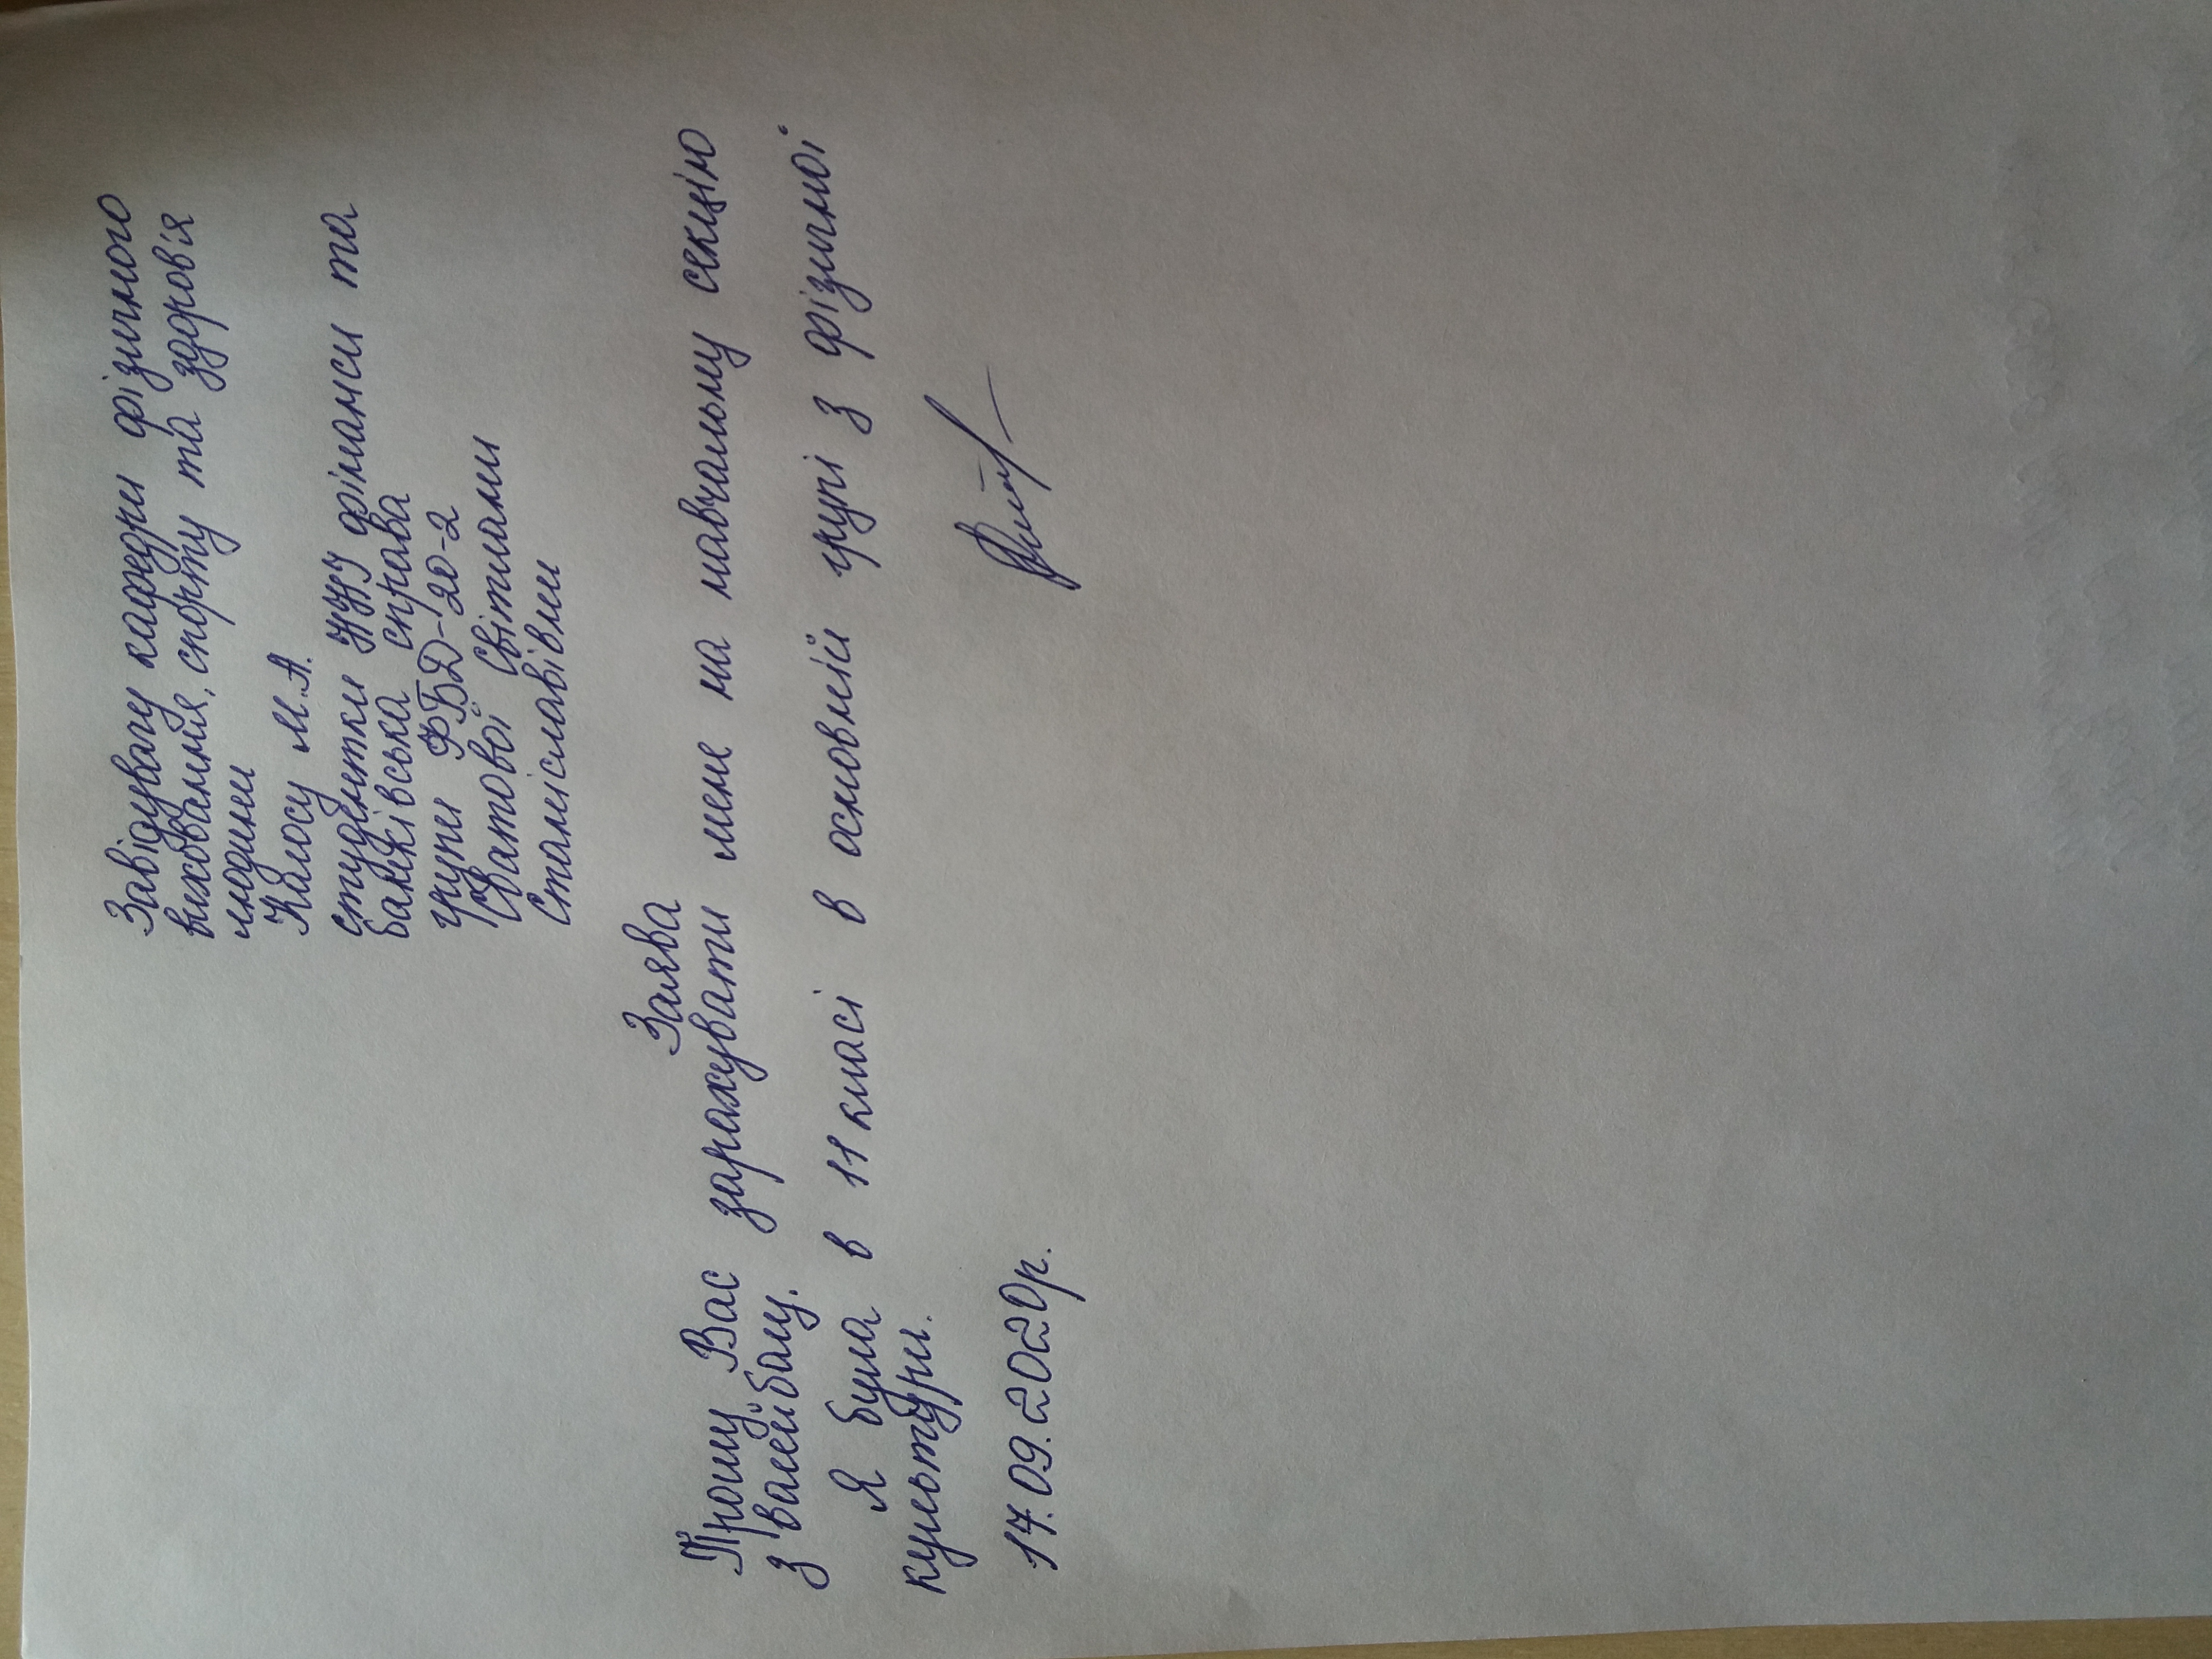 Завідувачу кафедри фізичного
виховання, спорту та здоров'я
людини
Колосу М.А.
студентки ННІ фінанси та
банківська справа
групи ФБД-20-2
Сватової Світлани
Станіславівни
Заява
Прошу Вас зарахувати мене на навчальну секцію
з волейболу.
Я була в 11 класі в основній групі з фізичної
культури.
17.09.2020р.